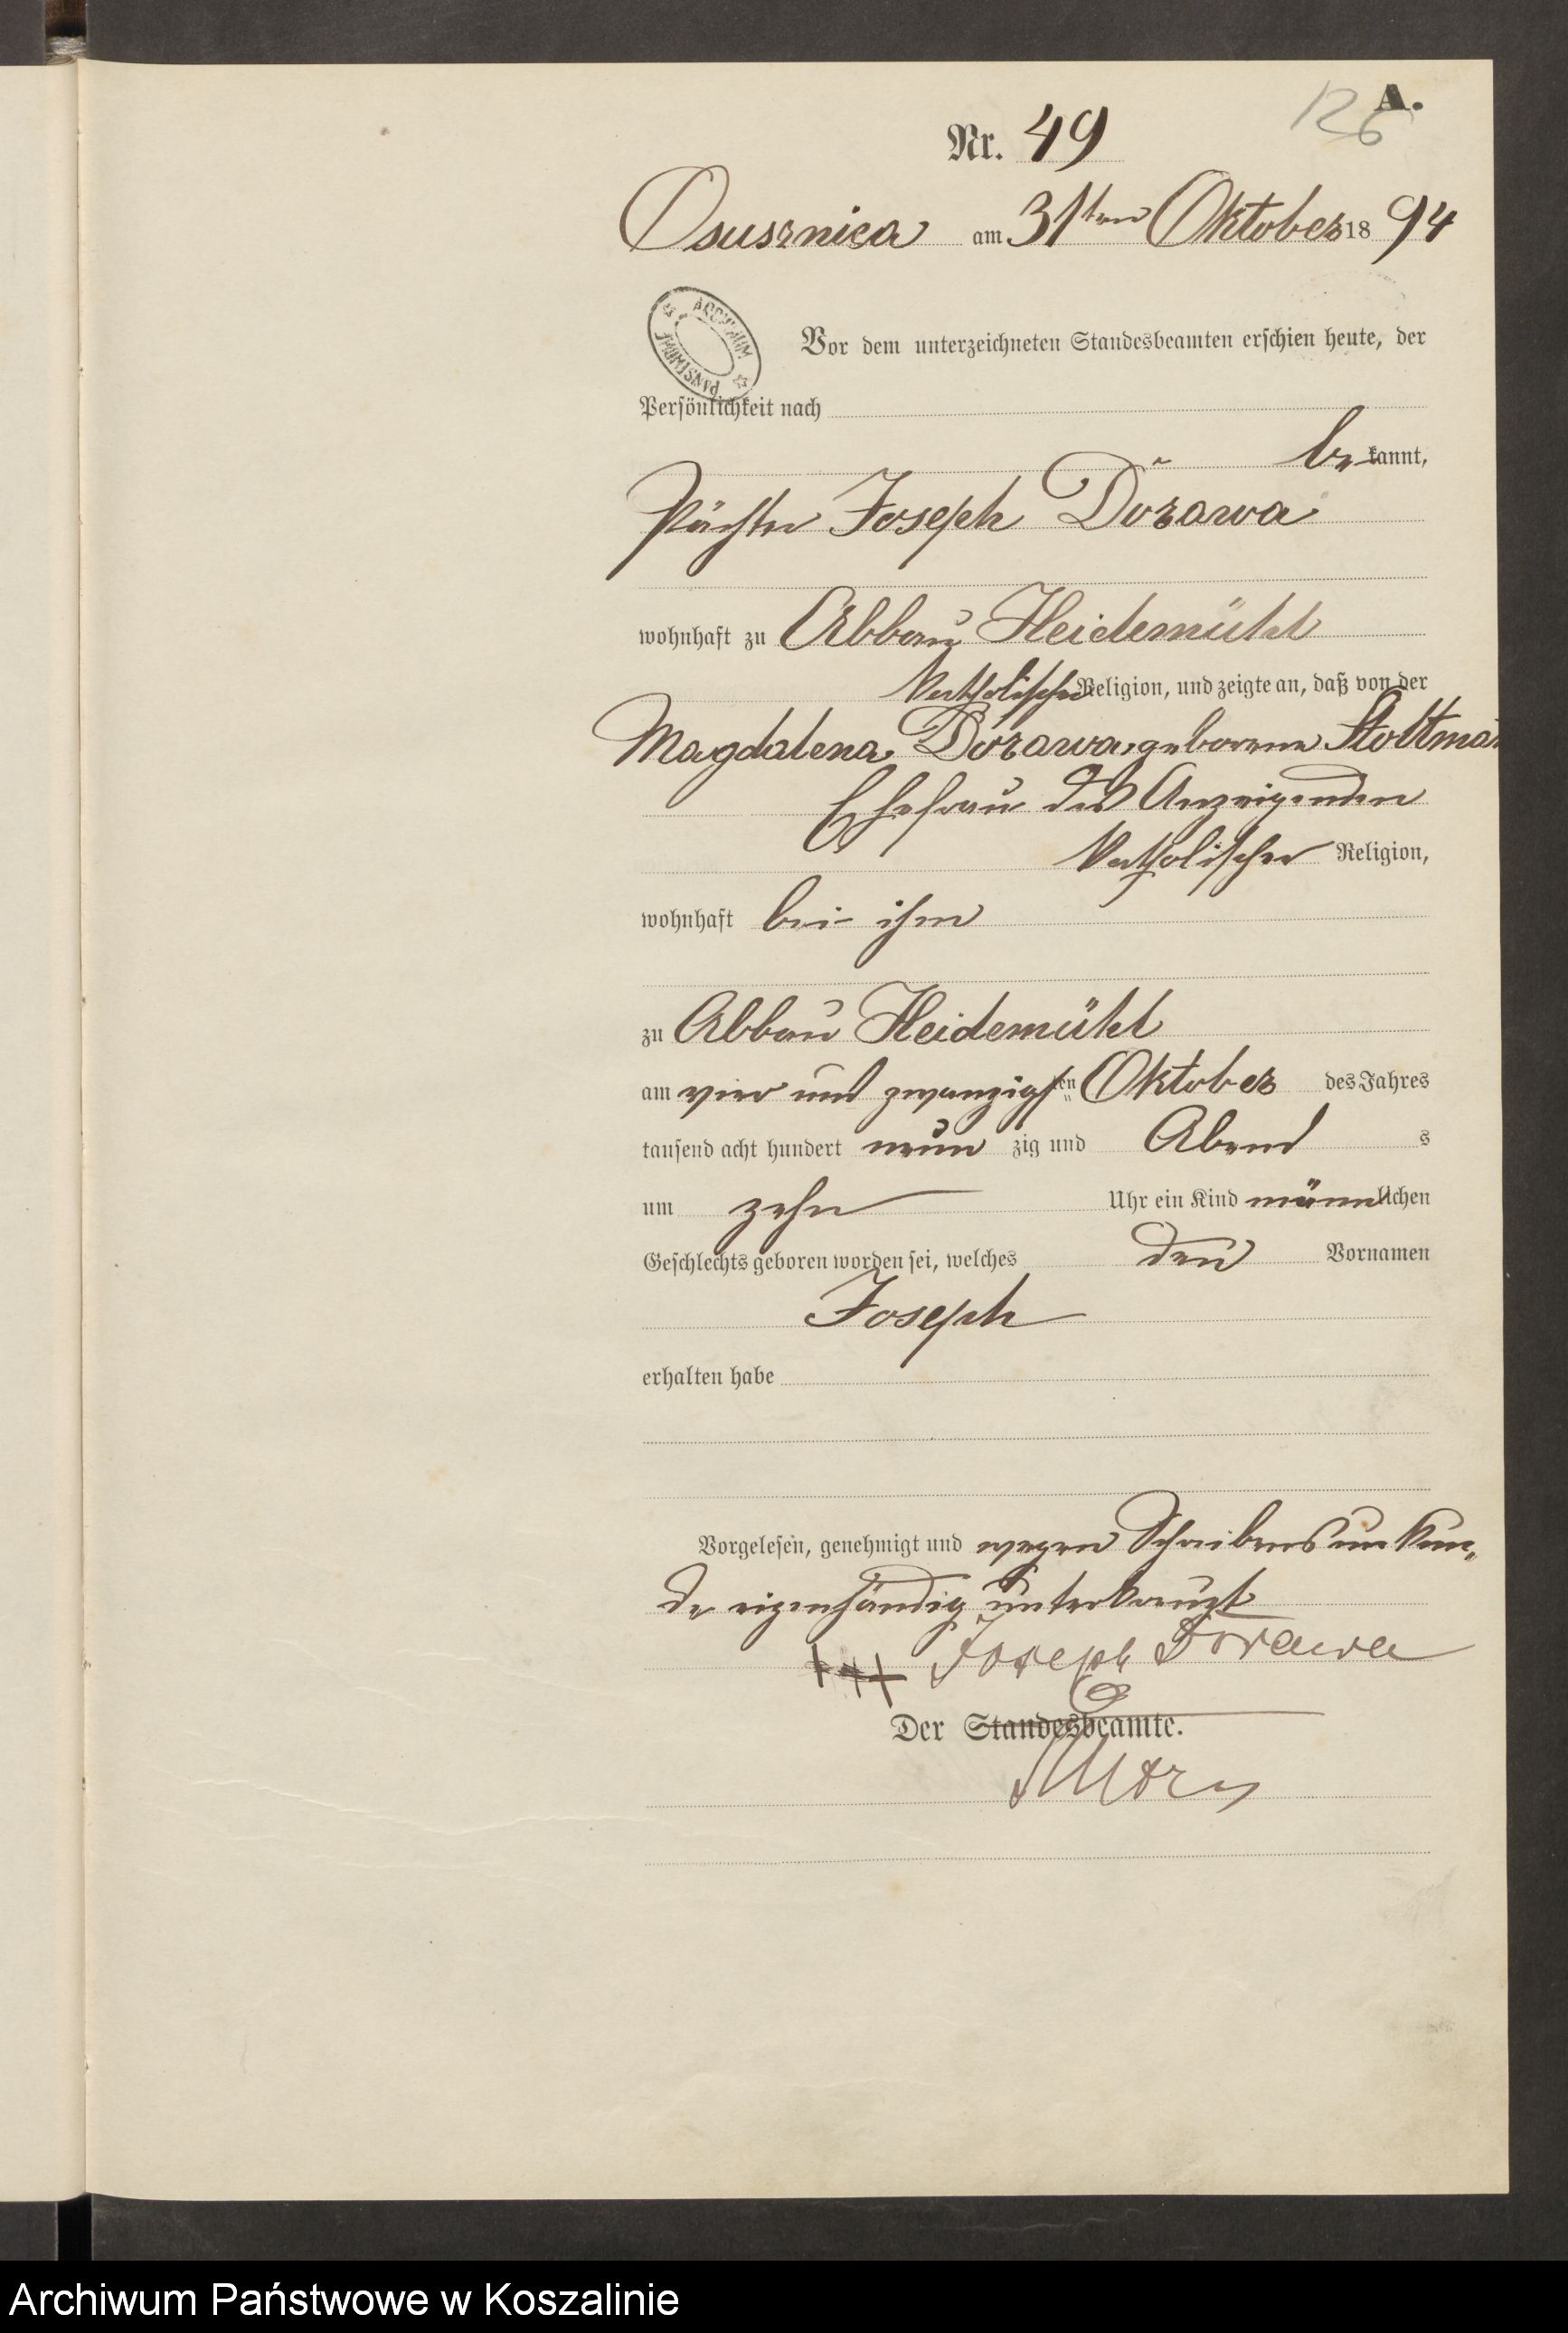 A.
126
Nr. 49
Osusznica am 31ten Oktober 1894
ARCHIWUM PAŃSTWOWE
Vor dem unterzeichneten Standesbeamten erschien heute, der
Persönlichkeit nach
bekannt,
Pächter Joseph Dorawa
wohnhaft zu Abbau Heidemühl
katholischer Religion, und zeigte an, daß von der
Magdalena Dorawa, geborene Stoltman
Ehefrau des Anzeigenden
katholischer Religion,
wohnhaft bei ihm
zu Abbau Heidemühl
am vier und zwanzigsten Oktober des Jahres
tausend acht hundert neunzig und Abends
um zehn Uhr ein Kind männlichen
Geschlechts geboren worden sei, welches den Vornamen
Joseph
erhalten habe
Vorgelesen, genehmigt und wegen Schreibensunkun-
de eigenhändig unterkreuzt
+++ Joseph Dorawa
Der Standesbeamte.
Archiwum Państwowe w Koszalinie